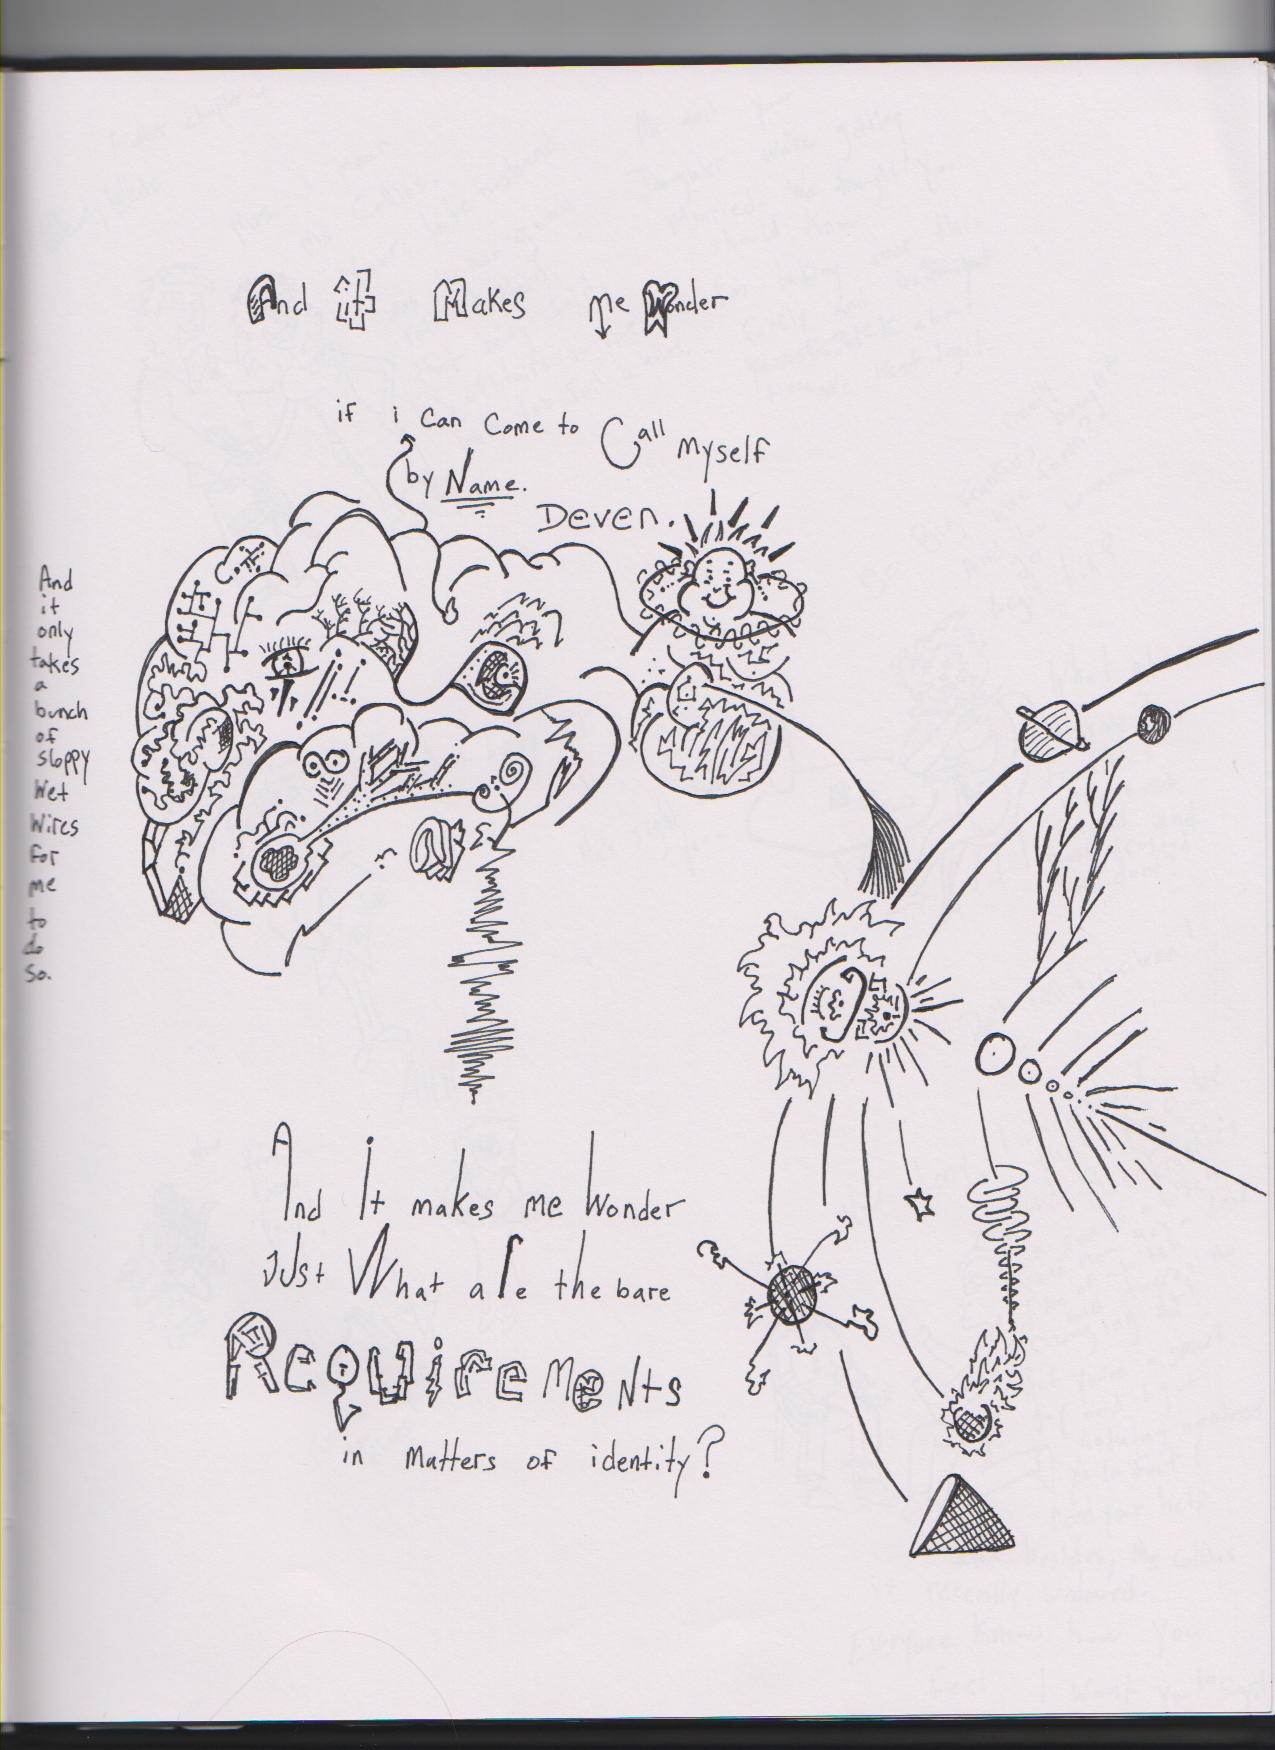 And it Makes Me Wonder
if i can come to Call Myself
by Name.
Deven.
And
it
only
takes
a
bunch
of
sloppy
Wet
Wires
for
me
to
do
so.
And It makes me Wonder
Just What are the bare
Requirements
in matters of identity?